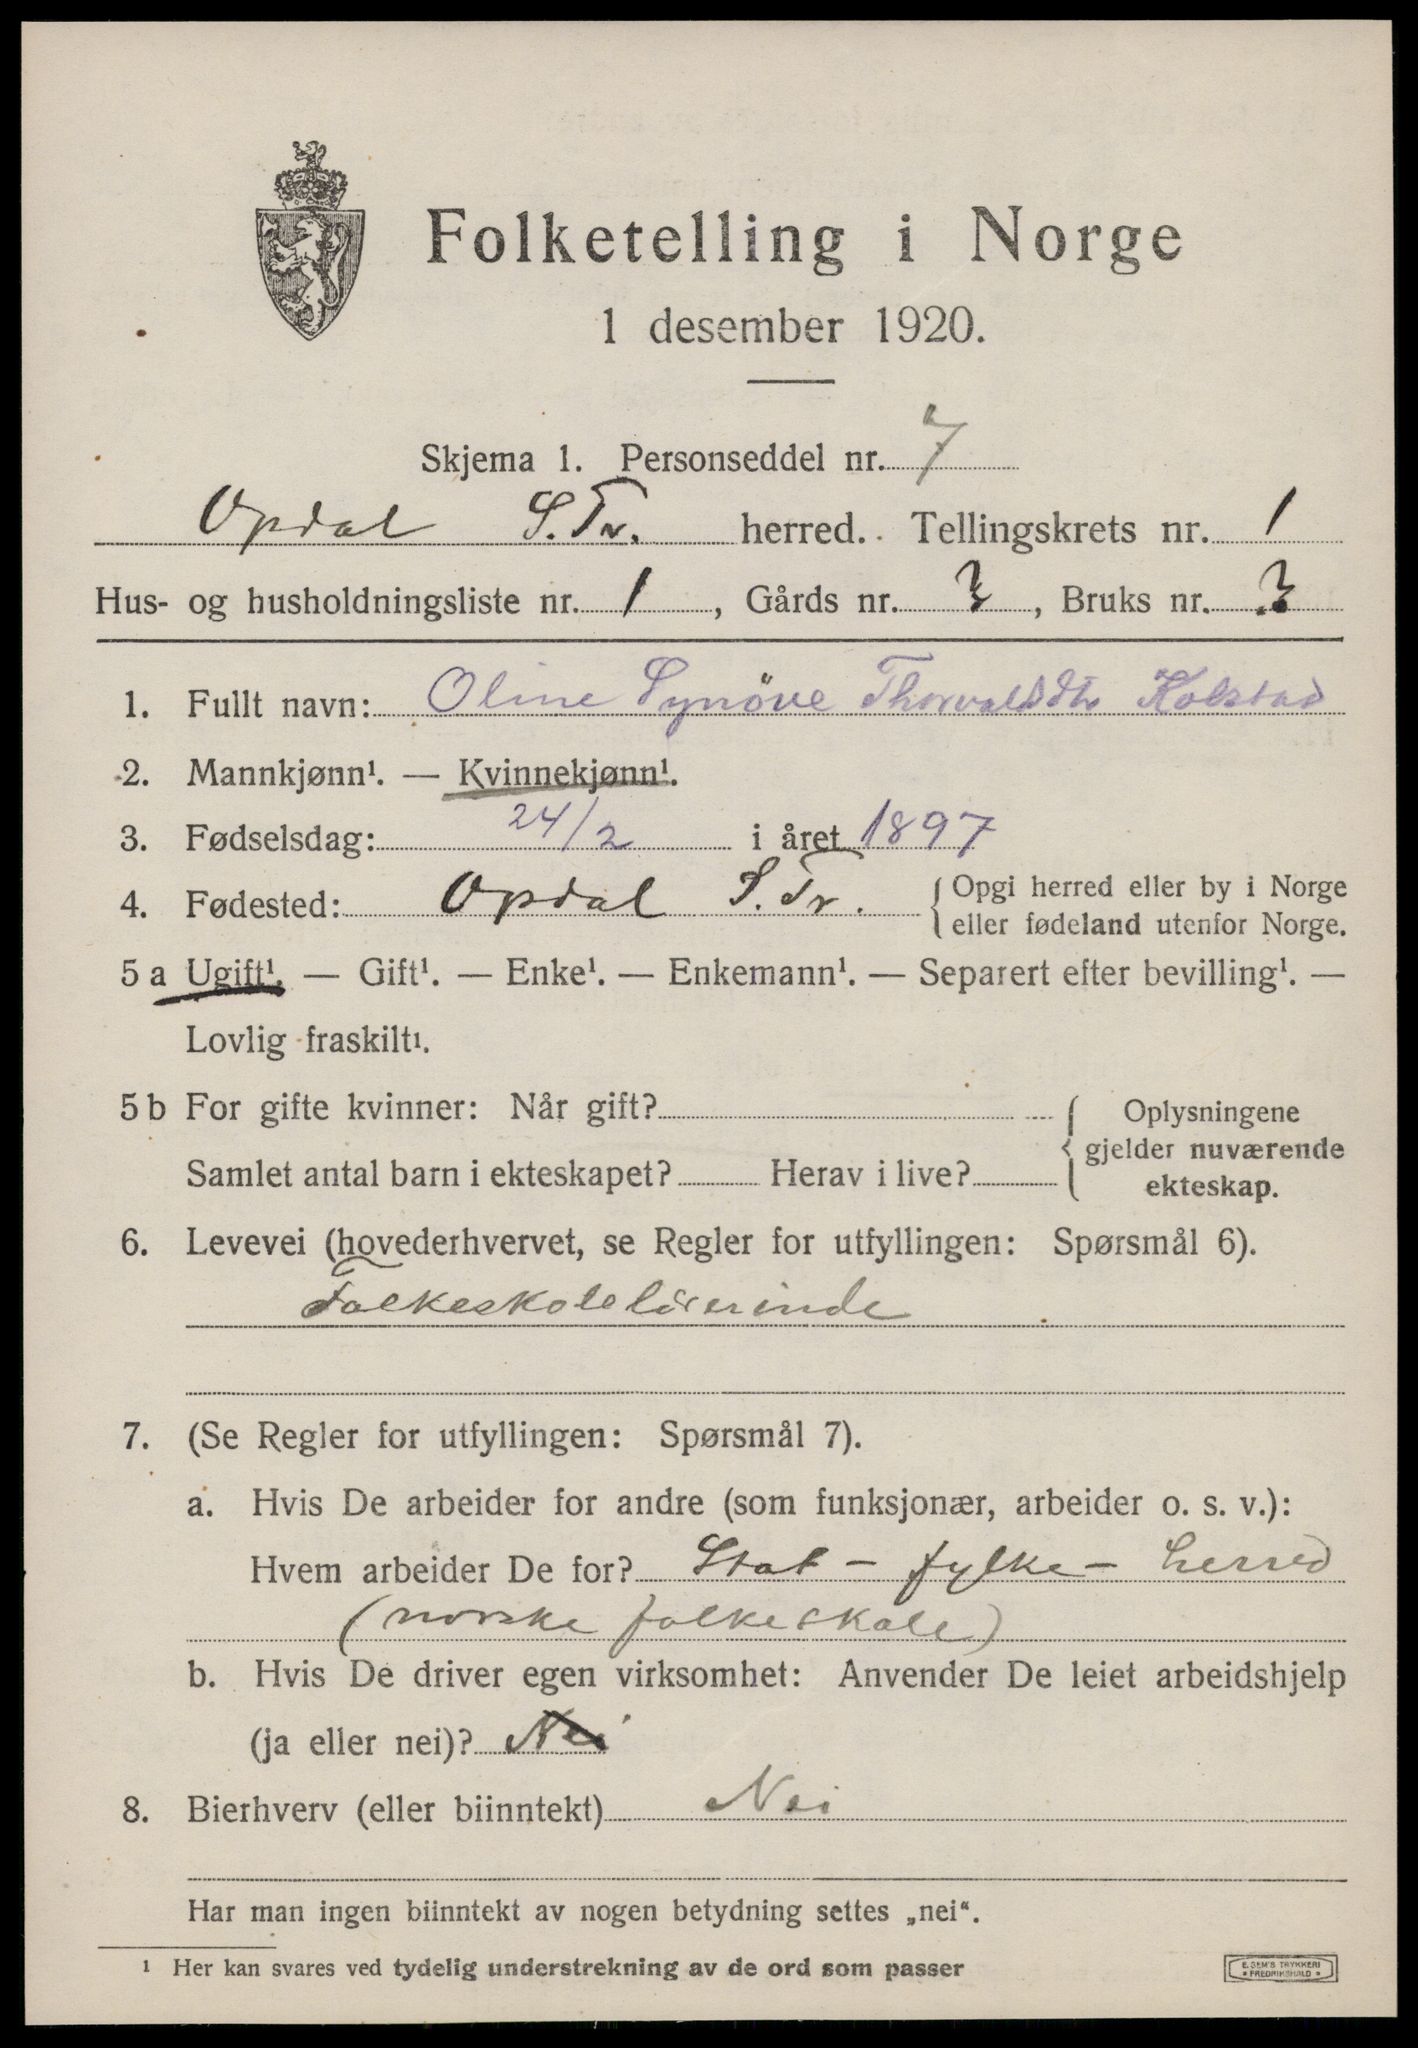 Folketelling i Norge
1 desember 1920.
Skjema 1. Personseddel nr. 7
Opdal S. Tr. herred. Tellingskrets nr. 1
Hus- og husholdningsliste nr. 1, Gårds nr. 3, Bruks nr. 3
1. Fullt navn: Oline Synöve Thorvaldsdtr Kolstad
2. Mannkjønn¹. — Kvinnekjønn¹.
3. Fødselsdag: 24/2 i året 1897
4. Fødested: Opdal S. Tr. { Opgi herred eller by i Norge
eller fødeland utenfor Norge.
5 a Ugift¹. — Gift¹. — Enke¹. — Enkemann¹. — Separert efter bevilling¹. —
Lovlig fraskilt¹.
5 b For gifte kvinner: Når gift? { Oplysningene
gjelder nuværende
Samlet antal barn i ekteskapet? Herav i live?
ekteskap.
6. Levevei (hovederhvervet, se Regler for utfyllingen: Spørsmål 6).
Folkeskolelärerinde
7. (Se Regler for utfyllingen: Spørsmål 7).
a. Hvis De arbeider for andre (som funksjonær, arbeider o. s. v.):
Hvem arbeider De for? Stat - fylke - herred
(norske folkeskole)
b. Hvis De driver egen virksomhet: Anvender De leiet arbeidshjelp
(ja eller nei)? Nei
8. Bierhverv (eller biinntekt) Nei
Har man ingen biinntekt av nogen betydning settes „nei“.
¹ Her kan svares ved tydelig understrekning av de ord som passer
E. SEM'S TRYKKERI
FREDRIKSHALD